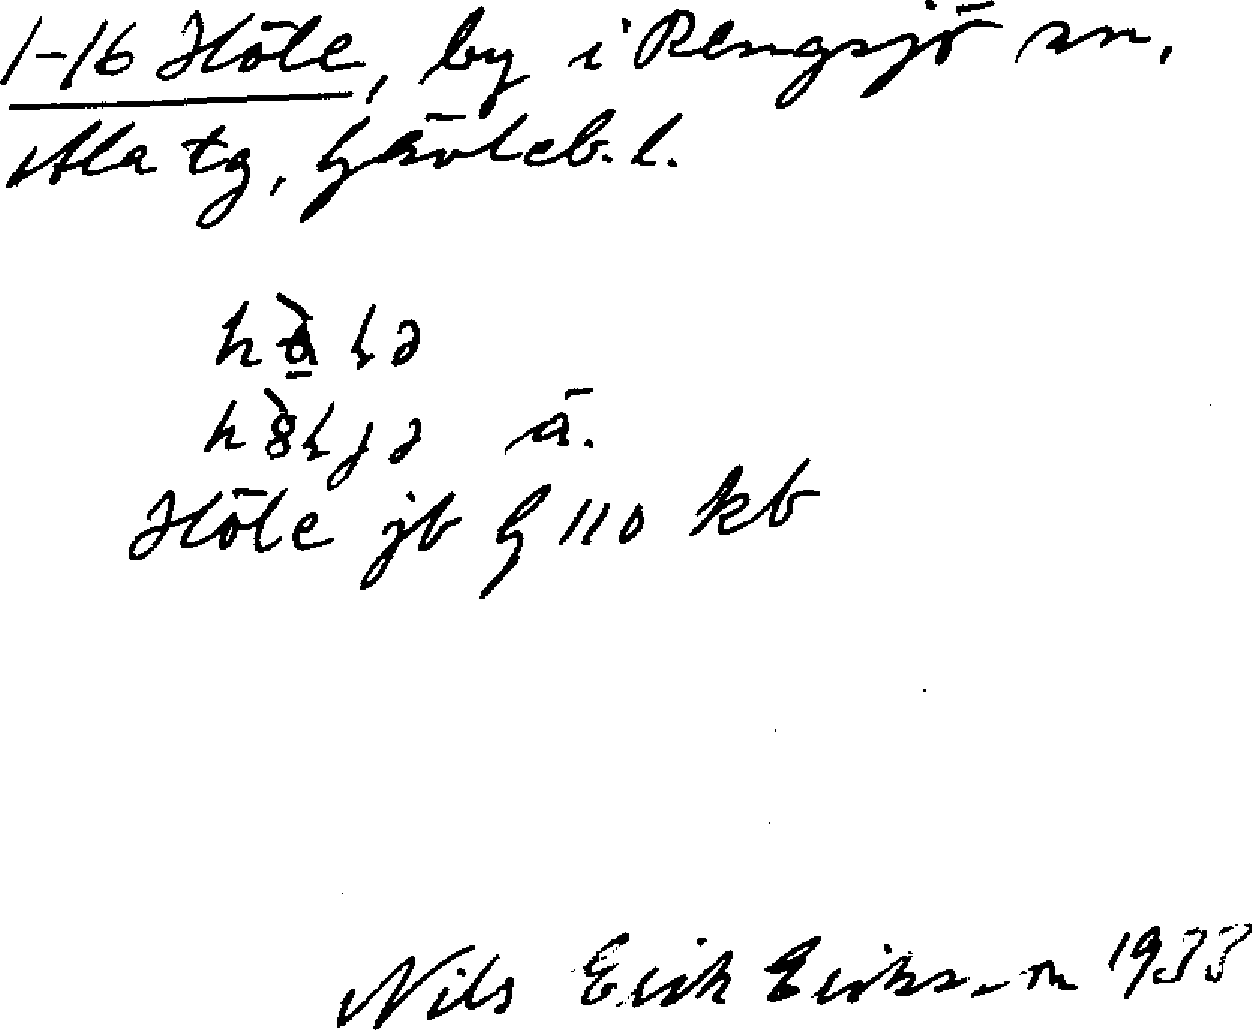 1-16 Höle, by i Rengsjö sn,
Ala tg, Gävleb. l.
ä.
Höle jb G 110 kb
Nils Erik Eriksson 1933